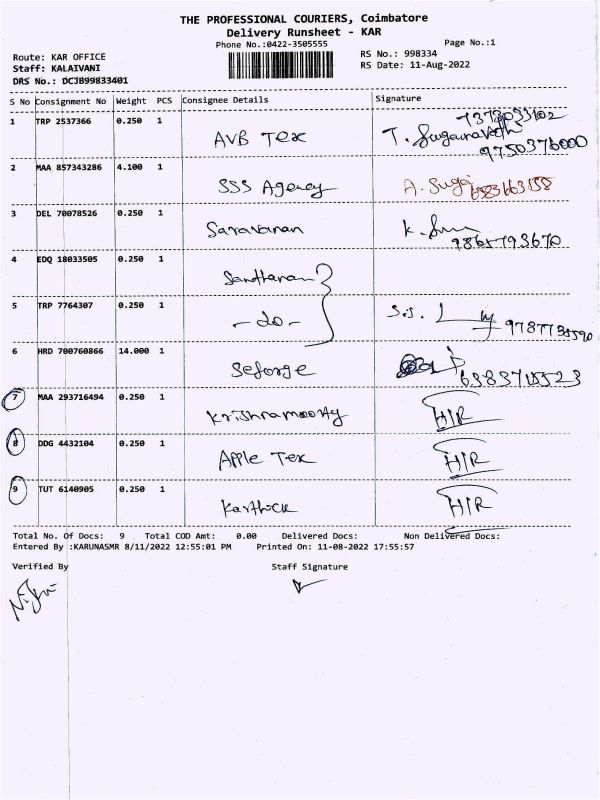 THE PROFESSIONAL COURIERS, Coimbatore
Delivery Runsheet - KAR
Phone No.:0422-3505555
Page No.:1
Route: KAR OFFICE
RS No.: 998334
Staff: KALAIVANI
RS Date: 11-Aug-2022
DRS No.: DCJB99833401
S No Consignment No Weight PCS Consignee Details Signature
1 TRP 2537366 0.250 1 AVB Tex T.
9750376000
2 MAA 857343286 4.100 1 SSS Agency A.
3 DEL 70078526 0.250 1 Saravanan K.
9865793670
4 EDQ 18033505 0.250 1
5 TRP 7764307 0.250 1 - do - S.S.
6 HRD 700760866 14.000 1 Seforge
7 MAA 293716494 0.250 1 Krishnamoorthy H/R
8 DDG 4432104 0.250 1 Apple Tex H/R
9 TUT 6140905 0.250 1 H/R
Total No. Of Docs: 9 Total COD Amt: 0.00 Delivered Docs: Non Delivered Docs:
Entered By :KARUNASMR 8/11/2022 12:55:01 PM Printed On: 11-08-2022 17:55:57
Verified By Staff Signature